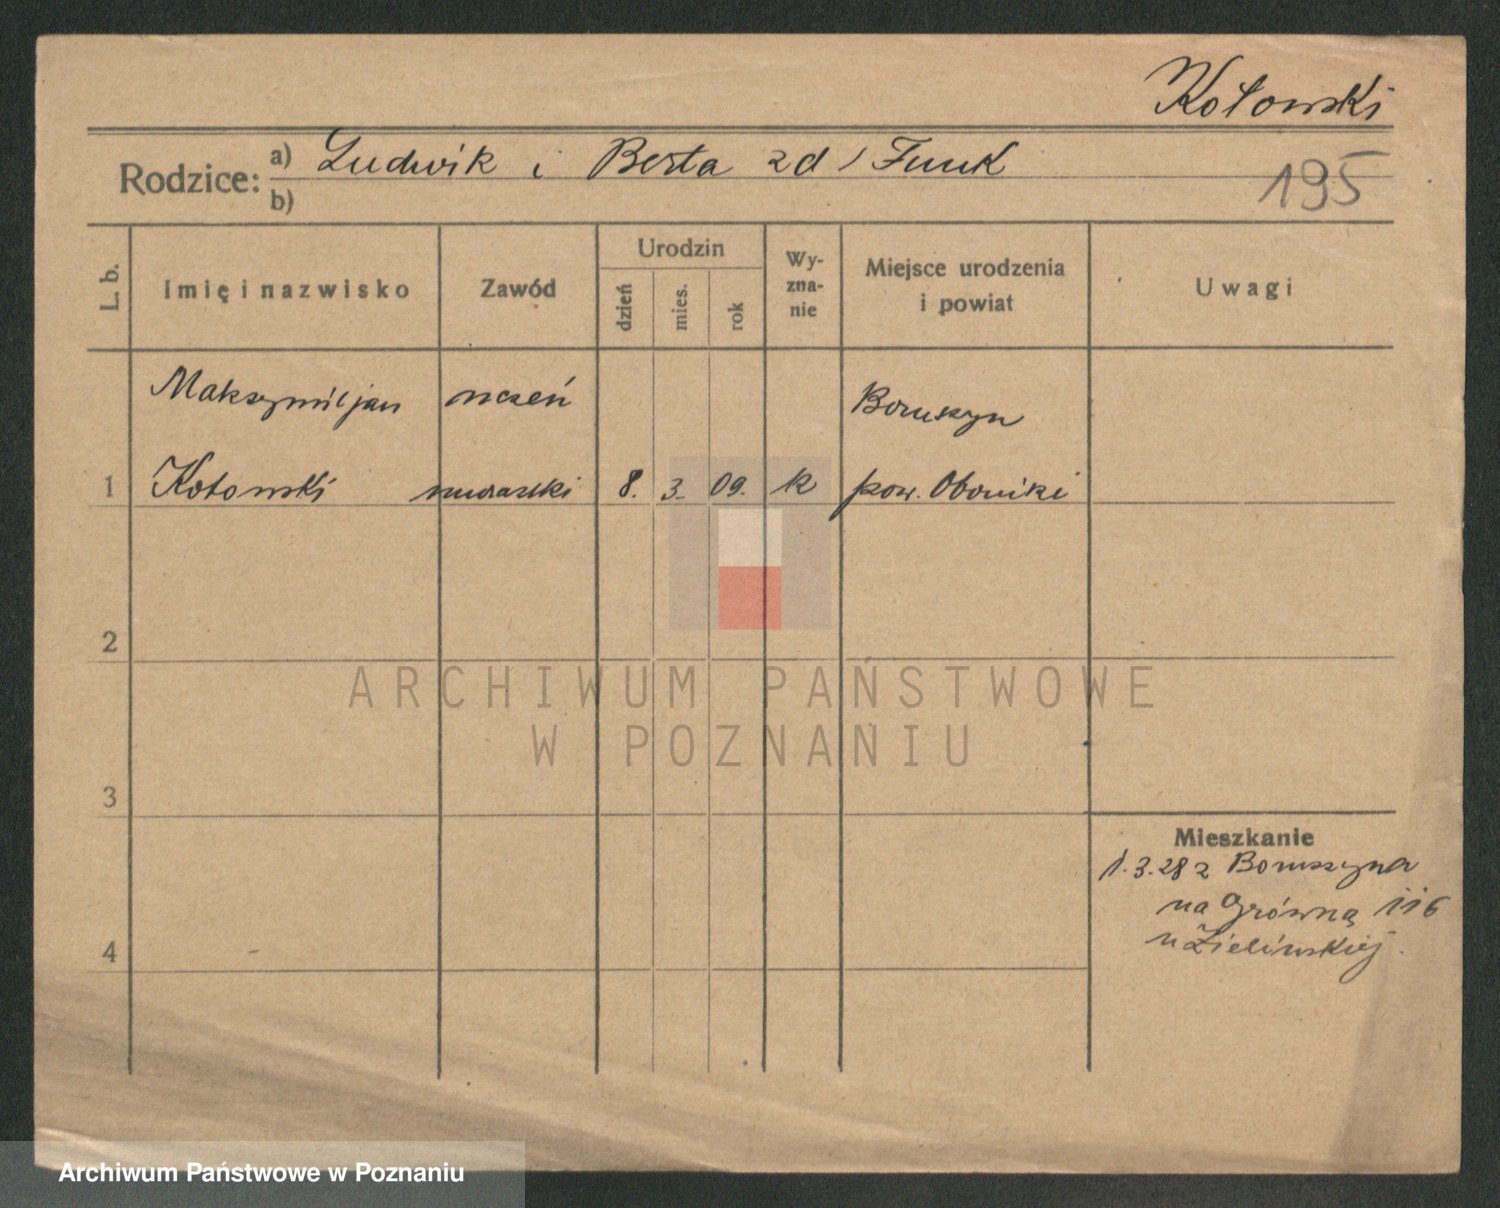 Kotowski
Rodzice: a) Ludwik i Berta zd/ Funk
b)
195
L. b.
Imię i nazwisko
Zawód
Urodzin
dzień
mies.
rok
Wy-
zna-
nie
Miejsce urodzenia
i powiat
Uwagi
Maksymiljan uczeń Boruszyn
1 Kotowski murarski 8. 3. 09. k pow. Oborniki
2
ARCHIWUM PAŃSTWOWE
W POZNANIU
3
Mieszkanie
1.3.28 z Boruszyna
na Główną 116
u Zielińskiej.
4
Archiwum Państwowe w Poznaniu